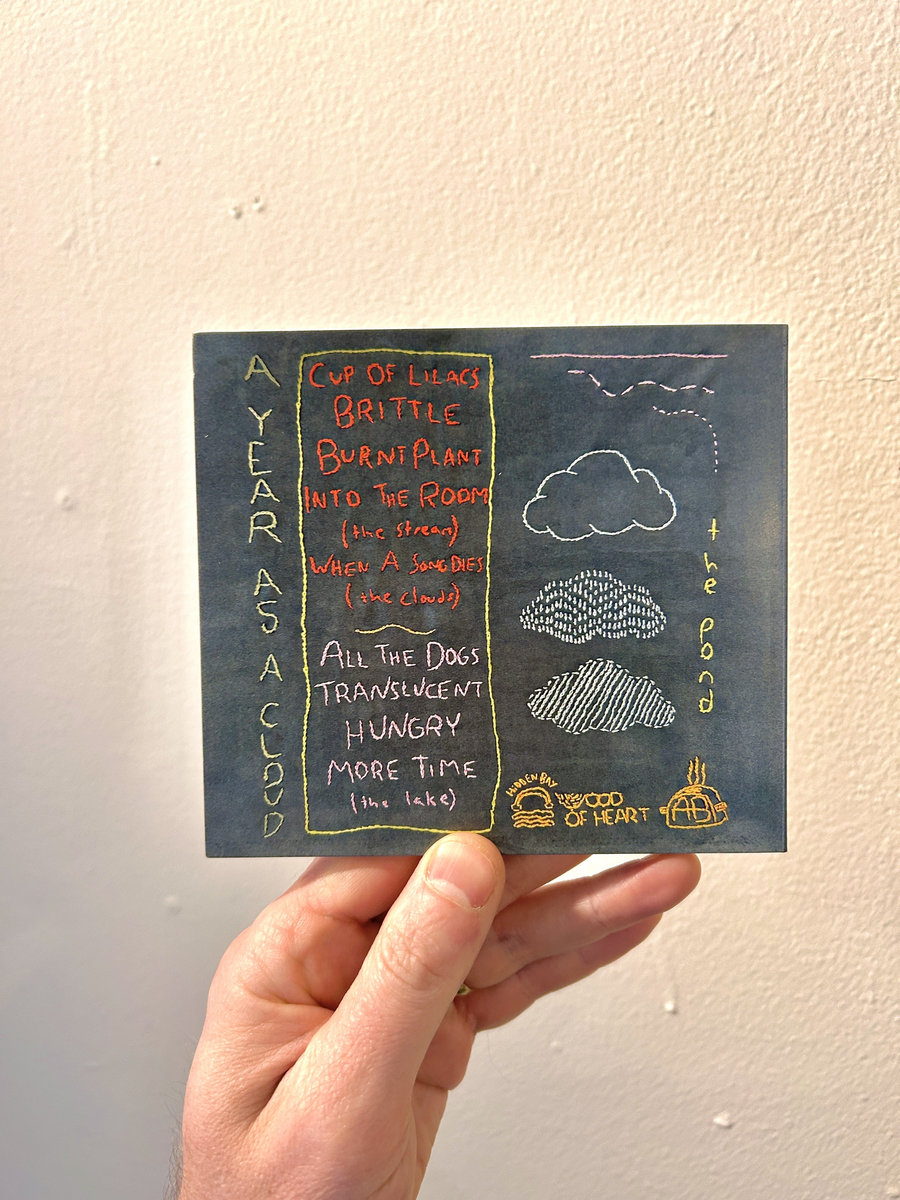 A YEAR AS A CLOUD
CUP OF LILACS
BRITTLE
BURNT PLANT
INTO THE ROOM
(the stream)
WHEN A SONG DIES
(the clouds)
ALL THE DOGS
TRANSLUCENT
HUNGRY
MORE TIME
(the lake)
the pond
HIDDEN BAY
WOOD
OF HEART
ABR